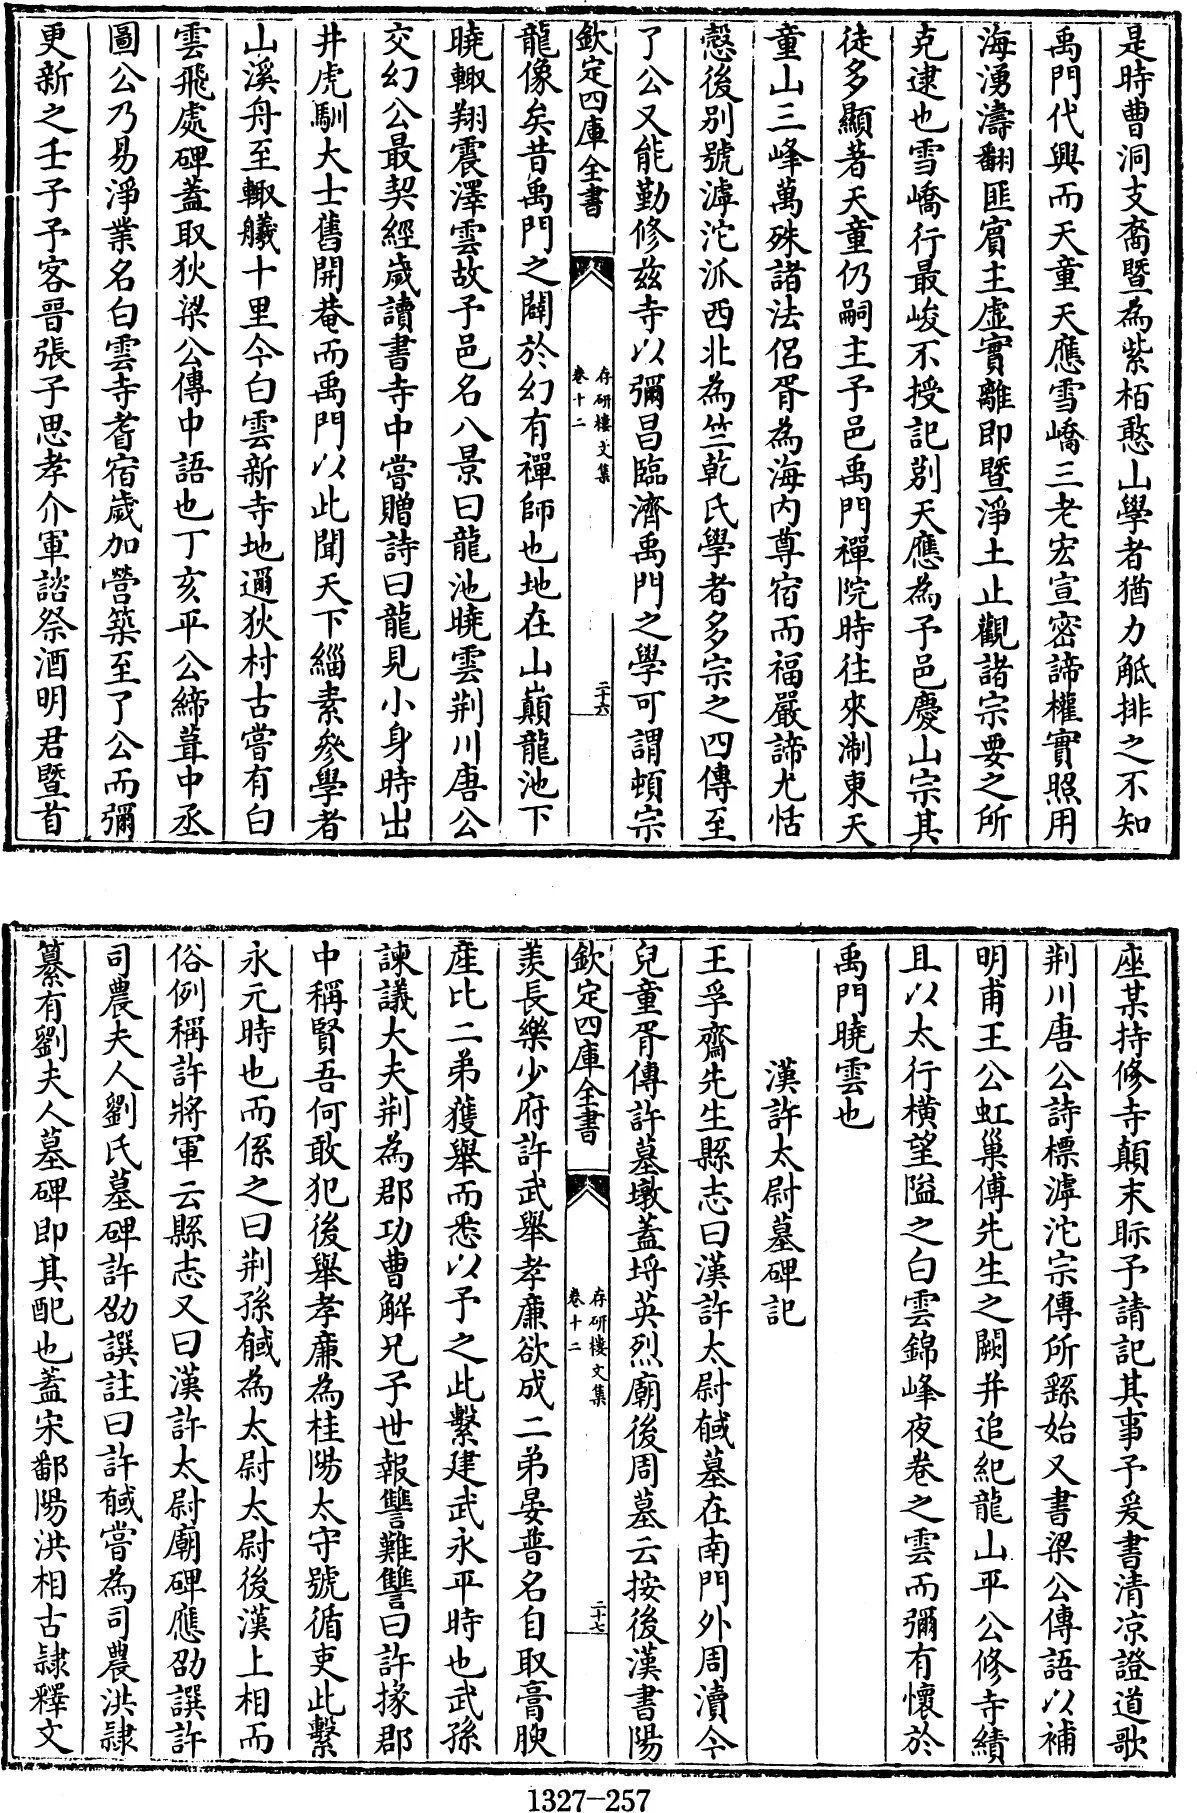 是時曹洞支裔暨為紫栢憨山學者猶力觝排之不知
禹門代興而天童天應雪嶠三老宏宣密諦權實照用
海湧濤翻匪賓主虛實離即暨淨土止觀諸宗要之所
克逮也雪嶠行最峻不授記莂天應為予邑慶山宗其
徒多顯著天童仍嗣主予邑禹門禪院時往來淛東天
童山三峰萬殊諸法侶胥為海内尊宿而福嚴諦尤恬
慤後别號滹沱派西北為竺乾氏學者多宗之四傳至
了公又能勤修兹寺以彌昌臨濟禹門之學可謂頓宗
欽定四庫全書
存研樓文集
卷十二
二十六
龍像矣昔禹門之闢於幻有禪師也地在山巔龍池下
曉輙翔震澤雲故予邑名八景曰龍池曉雲荆川唐公
交幻公最契經歲讀書寺中嘗贈詩曰龍見小身時出
井虎馴大士舊開菴而禹門以此聞天下緇素叅學者
山溪舟至輙艤十里今白雲新寺地邇狄村古嘗有白
雲飛處碑蓋取狄梁公傳中語也丁亥平公締葺中丞
圖公乃易淨業名白雲寺耆宿歲加營築至了公而彌
更新之壬子予客晉張子思孝介軍諮祭酒明君暨首
座某持修寺顛末眎予請記其事予爰書清凉證道歌
荆川唐公詩標滹沱宗傳所繇始又書梁公傳語以補
明甫王公虹巢傅先生之闕并追紀龍山平公修寺績
且以太行橫望隘之白雲錦峰夜卷之雲而彌有懷於
禹門曉雲也
漢許太尉墓碑記
王孚齋先生縣志曰漢許太尉䤋墓在南門外周瀆今
兒童胥傳許墓墩蓋埒英烈廟後周墓云按後漢書陽
欽定四庫全書
存研樓文集
卷十二
二十七
羨長樂少府許武舉孝廉欲成二弟晏普名自取膏腴
産比二弟獲舉而悉以予之此繫建武永平時也武孫
諫議大夫荆為郡功曹解兄子世報讐難讐曰許掾郡
中稱賢吾何敢犯後舉孝廉為桂陽太守號循吏此繫
永元時也而係之曰荆孫䤋為太尉太尉後漢上相而
俗例稱許將軍云縣志又曰漢許太尉廟碑應劭譔許
司農夫人劉氏墓碑許劭譔註曰許䤋嘗為司農洪隷
纂有劉夫人墓碑即其配也蓋宋鄱陽洪相古隷釋文
1327-257